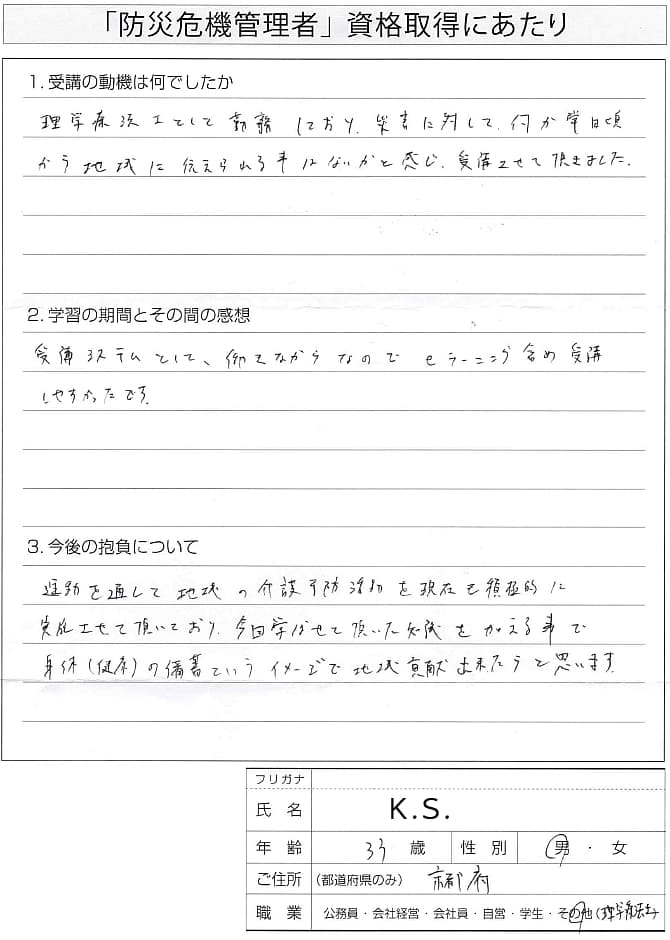 「防災危機管理者」資格取得にあたり
1. 受講の動機は何でしたか
理学療法士として勤務しており、災害に対して、何か常日頃
から地域に伝えられる事はないかと感じ、受講させて頂きました。
2. 学習の期間とその間の感想
受講システムとして、働きながらなので eラーニング含め受講
しやすかったです。
3. 今後の抱負について
運動を通して地域の介護予防活動を現在も積極的に
実施させて頂いており、今回学ばせて頂いた知識を加える事で
身体(健康)の備蓄というイメージで地域貢献出来たらと思います。
フリガナ
氏名 K.S.
年齢 33 歳 性別 男・女
ご住所 (都道府県のみ) 京都府
職業 公務員・会社経営・会社員・自営・学生・その他(理学療法士)